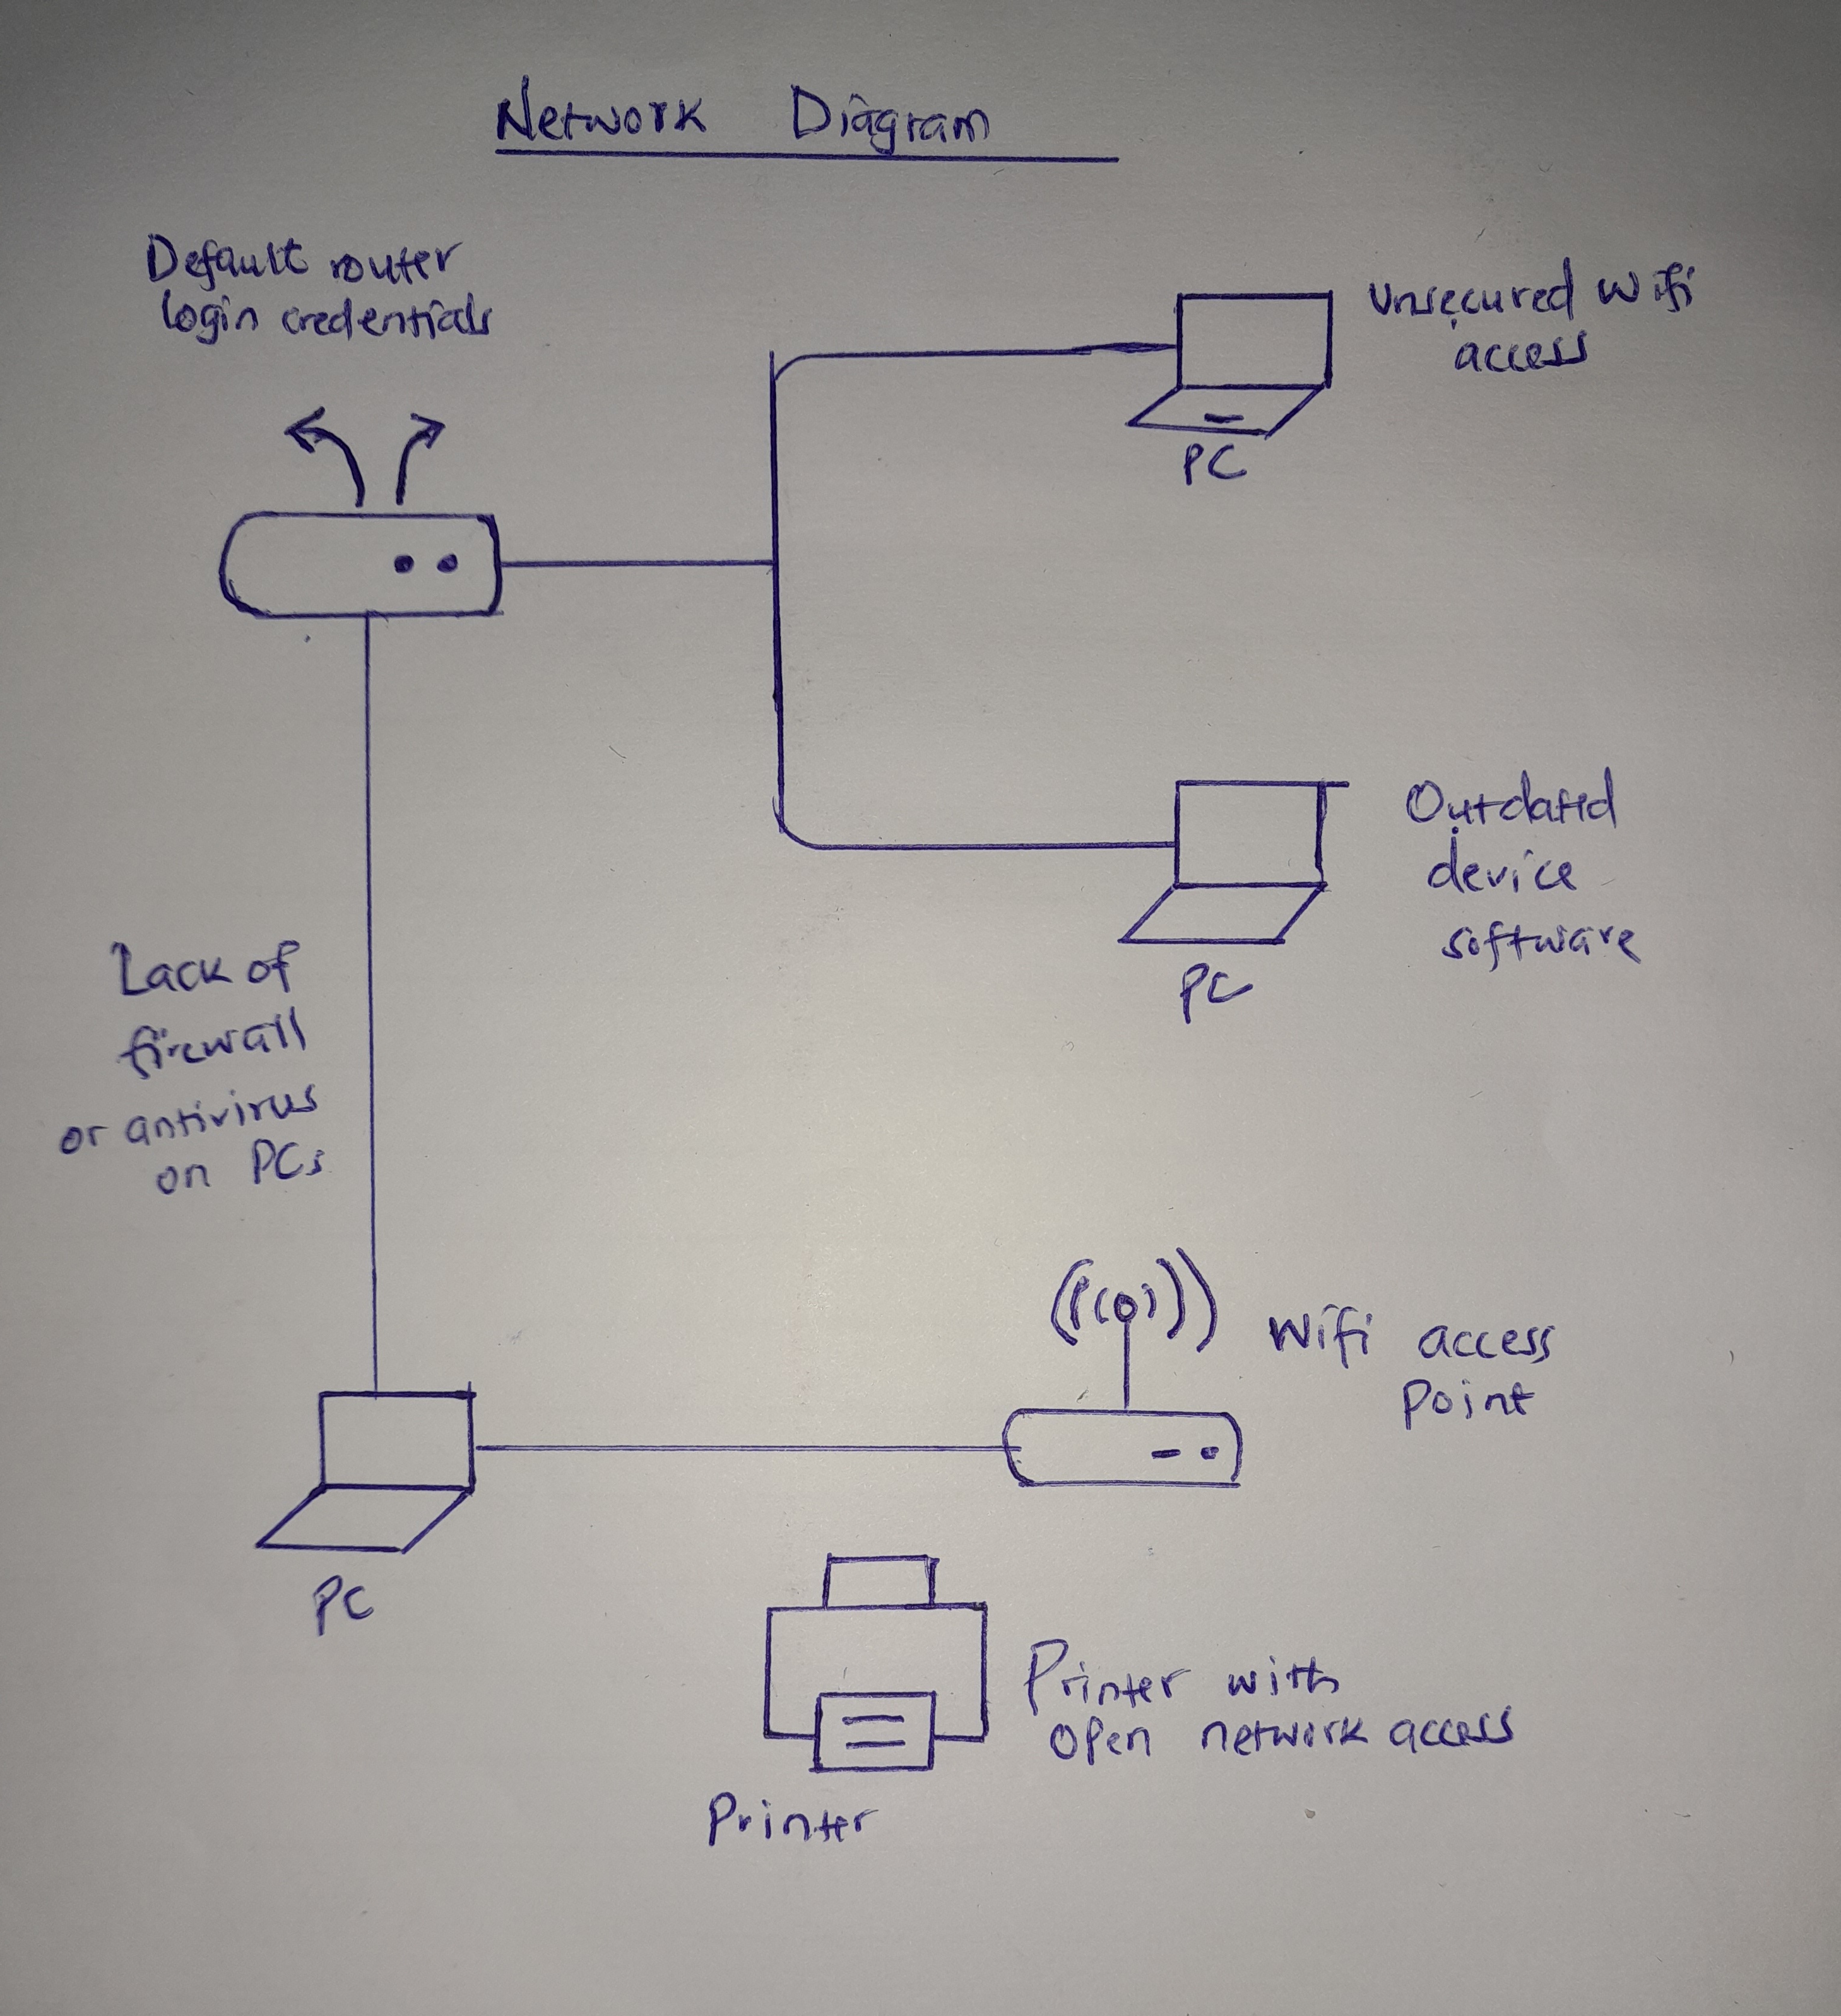 Network Diagram
Default router
login credentials
Unsecured Wifi
access
PC
Outdated
device
software
PC
Lack of
firewall
or antivirus
on PCs
Wifi access
Point
PC
Printer with
open network access
Printer